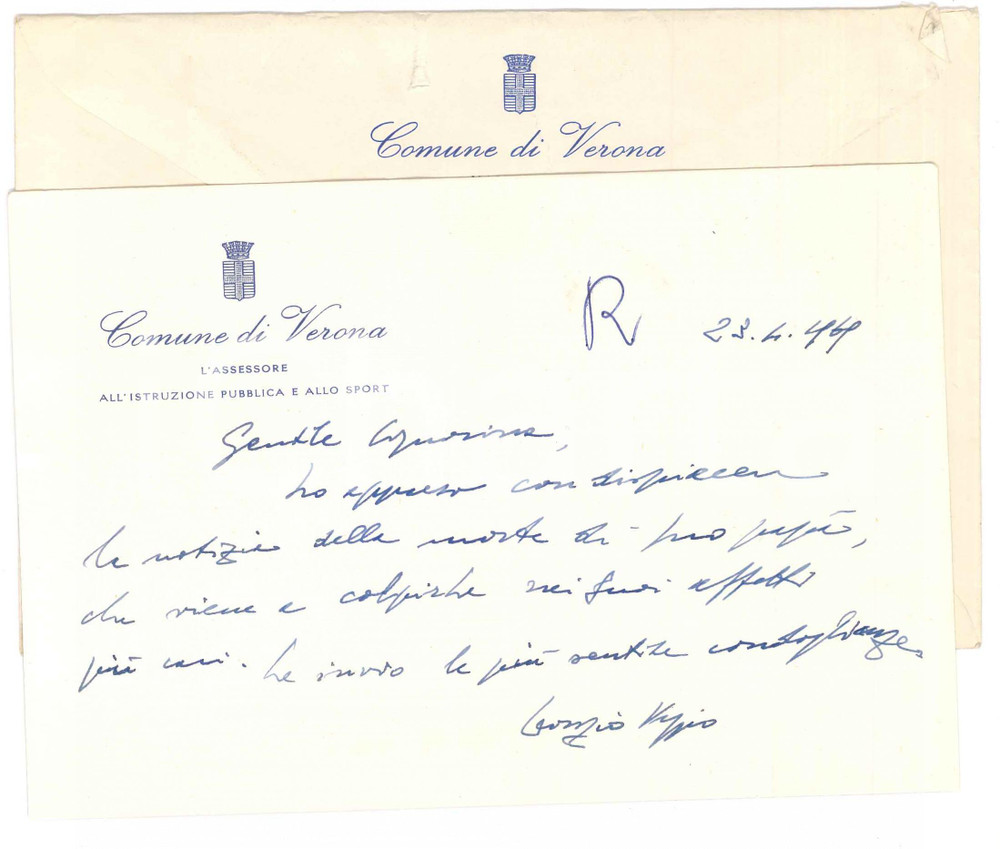 Comune di Verona
Comune di Verona
L'ASSESSORE
ALL'ISTRUZIONE PUBBLICA E ALLO SPORT
R
23.4.
Gentile Signorina,
ho appreso con dispiacere
la notizia della morte di Suo papà,
che viene a colpirLa nei Suoi affetti
più cari. Le invio le più sentite condoglianze.